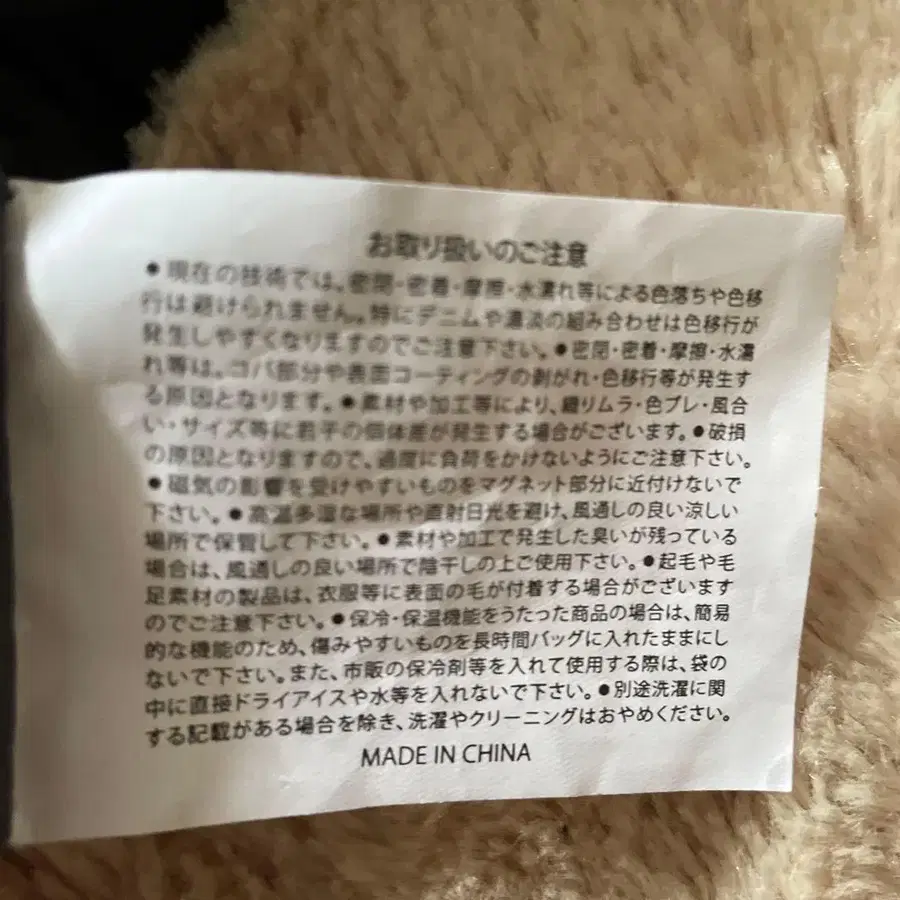 お取り扱いのご注意
●現在の技術では、密閉・密着・摩擦・水濡れ等による色落ちや色移
行は避けられません。特にデニムや濃淡の組み合わせは色移行が
発生しやすくなりますのでご注意下さい。●密閉・密着・摩擦・水濡
れ等は、コバ部分や表面コーティングの剥がれ・色移行等が発生す
る原因となります。●素材や加工等により、織りムラ・色ブレ・風合
い・サイズ等に若干の個体差が発生する場合がございます。●破損
の原因となりますので、過度に負荷をかけないようにご注意下さい。
●磁気の影響を受けやすいものをマグネット部分に近付けないで
下さい。●高温多湿な場所や直射日光を避け、風通しの良い涼しい
場所で保管して下さい。●素材や加工で発生した臭いが残っている
場合は、風通しの良い場所で陰干しの上ご使用下さい。●起毛や毛
足素材の製品は、衣服等に表面の毛が付着する場合がございます
のでご注意下さい。●保冷・保温機能をうたった商品の場合は、簡易
的な機能のため、傷みやすいものを長時間バッグに入れたままにし
ないで下さい。また、市販の保冷剤等を入れて使用する際は、袋の
中に直接ドライアイスや水等を入れないで下さい。●別途洗濯に関
する記載がある場合を除き、洗濯やクリーニングはおやめください。
MADE IN CHINA